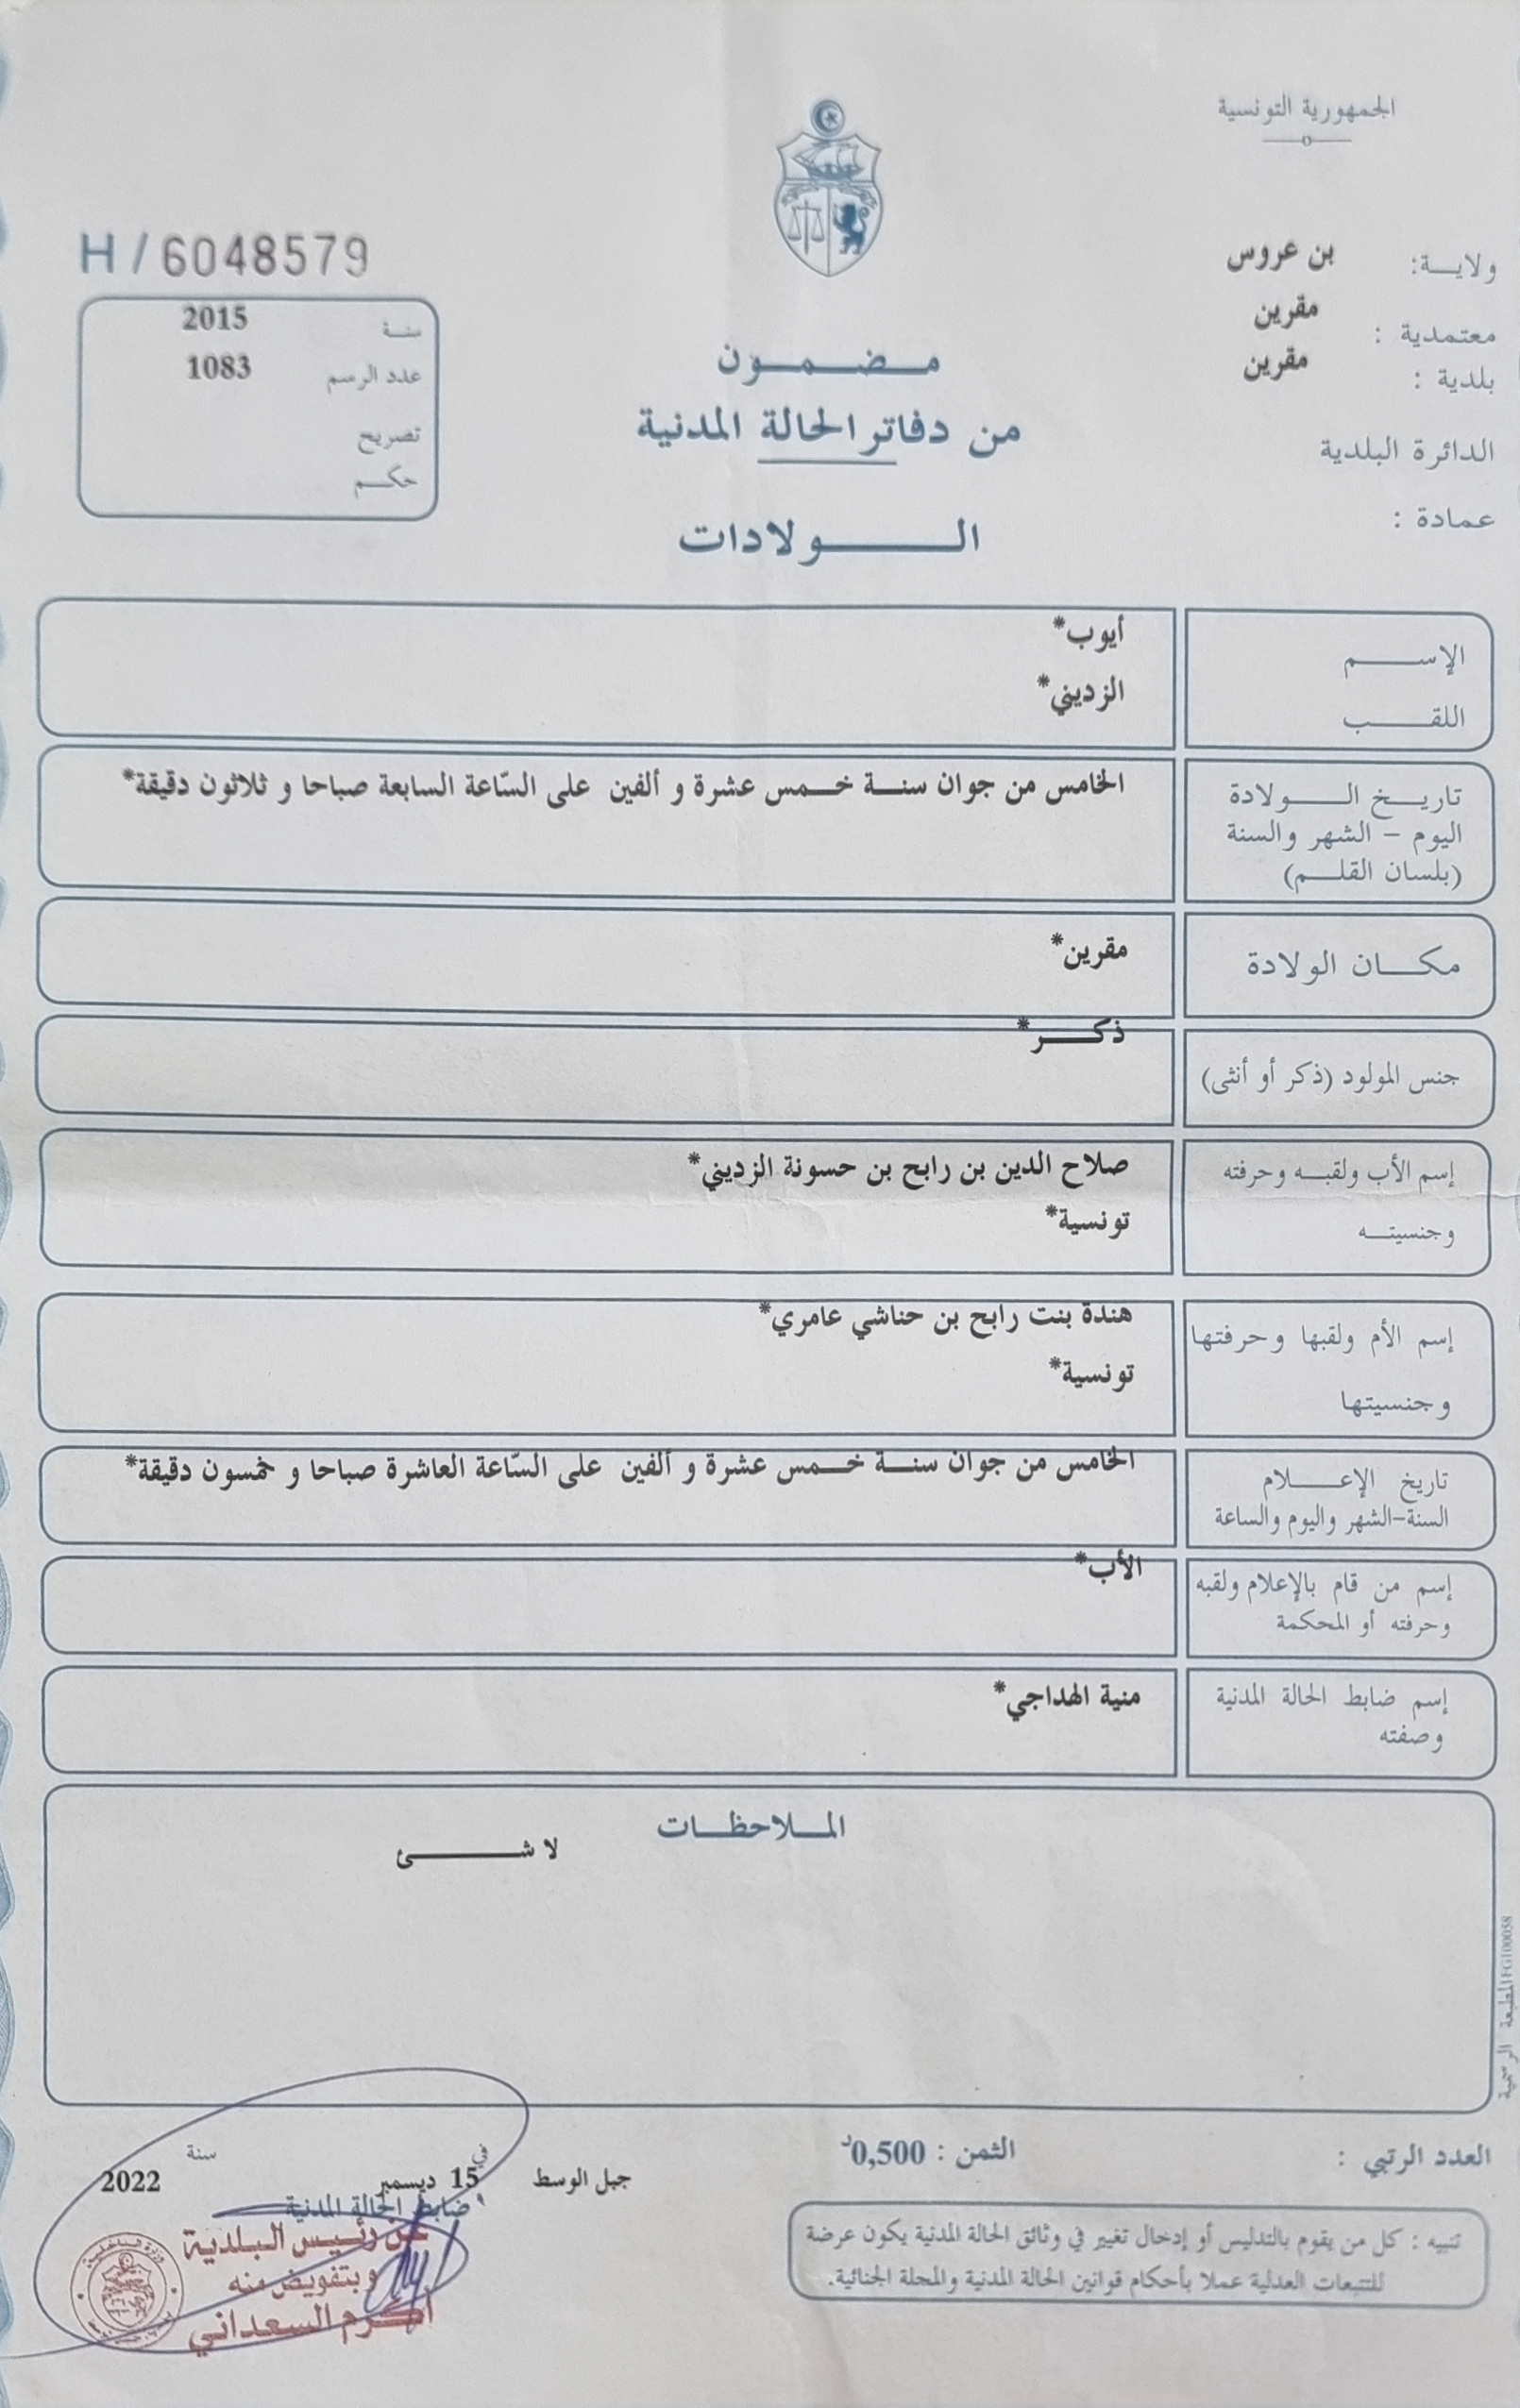 الجمهورية التونسية
ولايــة: بن عروس
معتمدية : مقرين
بلدية : مقرين
الدائرة البلدية
عمادة :
مـضـمـون
من دفاتر الحالة المدنية
الـــولادات
H / 6048579
سنـة 2015
عدد الرسم 1083
تصريح
حكـم
الإســـم أيوب*
اللقـــب الزديني*
تاريـخ الـــولادة
اليوم - الشهر والسنة
(بلسان القلـم)
الخامس من جوان سنـة خـمس عشرة و ألفين على السّاعة السابعة صباحا و ثلاثون دقيقة*
مكـــان الولادة مقرين*
جنس المولود (ذكر أو أنثى) ذكـــر*
إسم الأب ولقبـه وحرفته
وجنسيتـه
صلاح الدين بن رابح بن حسونة الزديني*
تونسية*
إسم الأم ولقبها وحرفتها
وجنسيتها
هندة بنت رابح بن حناشي عامري*
تونسية*
تاريخ الإعـــلام
السنة-الشهر واليوم والساعة
الخامس من جوان سنـة خـمس عشرة و ألفين على السّاعة العاشرة صباحا و خمسون دقيقة*
إسم من قام بالإعلام ولقبه
وحرفته أو المحكمة
الأب*
إسم ضابط الحالة المدنية
وصفته
منية الهداجي*
المـلاحظـات
لا شـــئ
المطبعة الرسمية
العدد الرتبي :
الثمن : 0,500د
جبل الوسط في 15 ديسمبر سنة 2022
ضابط الحالة المدنية
عن رئيس البلدية
وبتفويض منه
أكرم السعداني
تنبيه : كل من يقوم بالتدليس أو إدخال تغيير في وثائق الحالة المدنية يكون عرضة
للتتبعات العدلية عملا بأحكام قوانين الحالة المدنية والمجلة الجنائية.